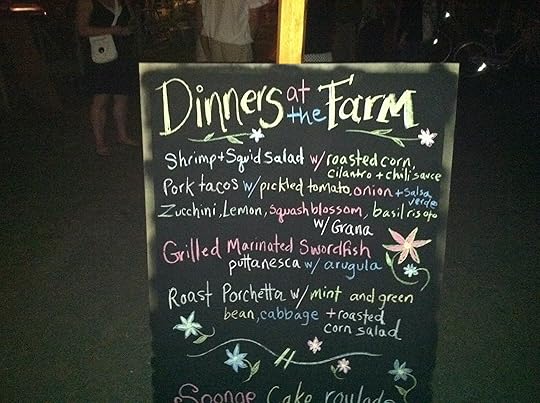 Dinners at the Farm
Shrimp+Squid Salad w/ roasted corn,
cilantro + chili sauce
Pork tacos w/ pickled tomato, onion + salsa
verde
Zucchini, Lemon, squash blossom, basil risoto
w/ Grana
Grilled Marinated Swordfish
puttanesca w/ arugula
Roast Porchetta w/ mint and green
bean, cabbage + roasted
corn salad
Sponge Cake roulade